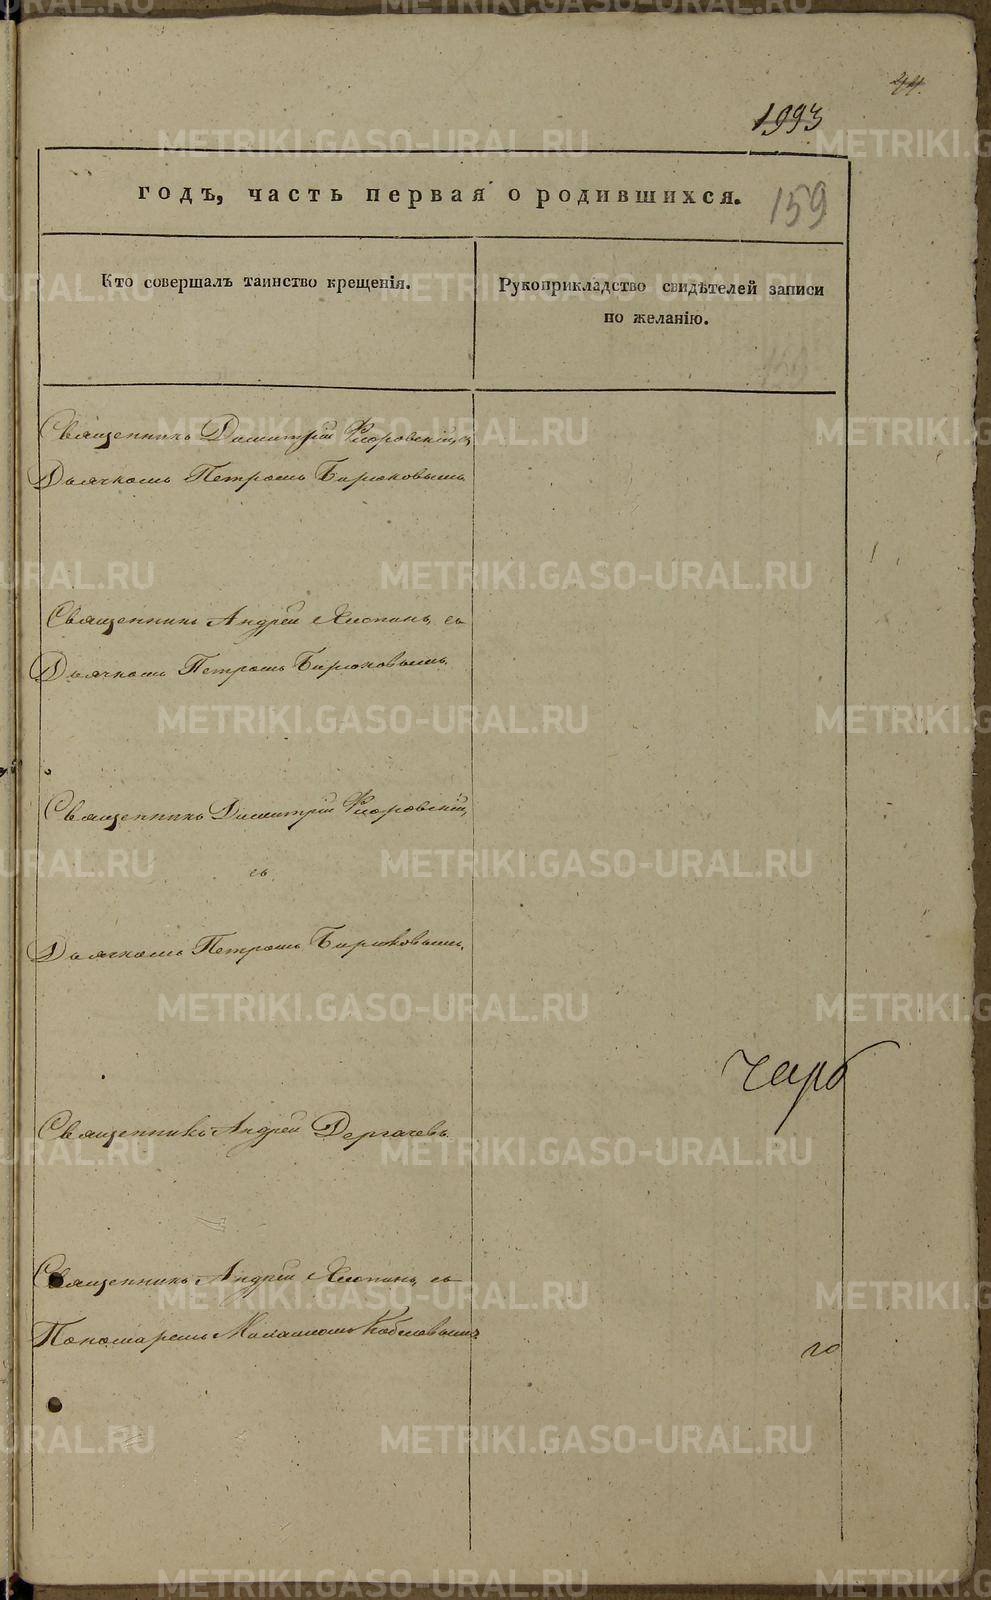 44.
1993
годъ, часть первая о родившихся.
159
Кто совершалъ таинство крещенія.
Рукоприкладство свидѣтелей записи
по желанію.
Священникъ Димитрій Флоровскій, съ
Дьячкомъ Петромъ Бирюковымъ
Священникъ Андрей Хлопинъ, съ
Дьячкомъ Петромъ Бирюковымъ.
Священникъ Димитрій Флоровскій,
съ
Дьячкомъ Петромъ Бирюковымъ.
Священникъ Андрей Дергачевъ.
Священникъ Андрей Хлопинъ, съ
Пономаремъ
METRIKI.GASO-URAL.RU